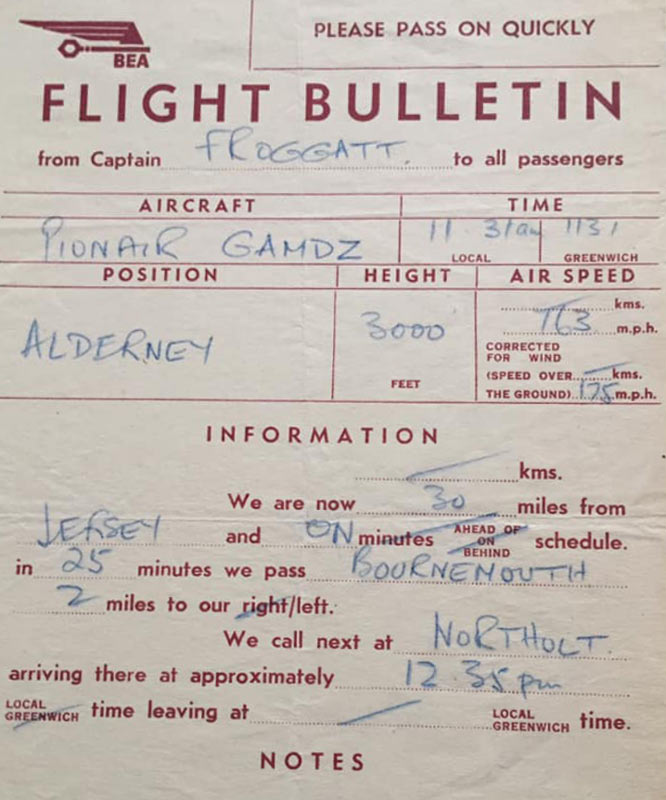 BEA
PLEASE PASS ON QUICKLY
FLIGHT BULLETIN
from Captain FROGGATT. to all passengers
AIRCRAFT TIME
PIONAIR GAMDZ 11.31am 1131
LOCAL GREENWICH
POSITION HEIGHT AIR SPEED
kms.
ALDERNEY 3000 163 m.p.h.
CORRECTED
FOR WIND
FEET (SPEED OVER kms.
THE GROUND) 175 m.p.h.
INFORMATION
kms.
We are now 30 miles from
JERSEY and ON minutes AHEAD OF ON BEHIND schedule.
in 25 minutes we pass BOURNEMOUTH
2 miles to our right/left.
We call next at NORTHOLT.
arriving there at approximately 12.35 pm
LOCAL GREENWICH time leaving at LOCAL GREENWICH time.
NOTES